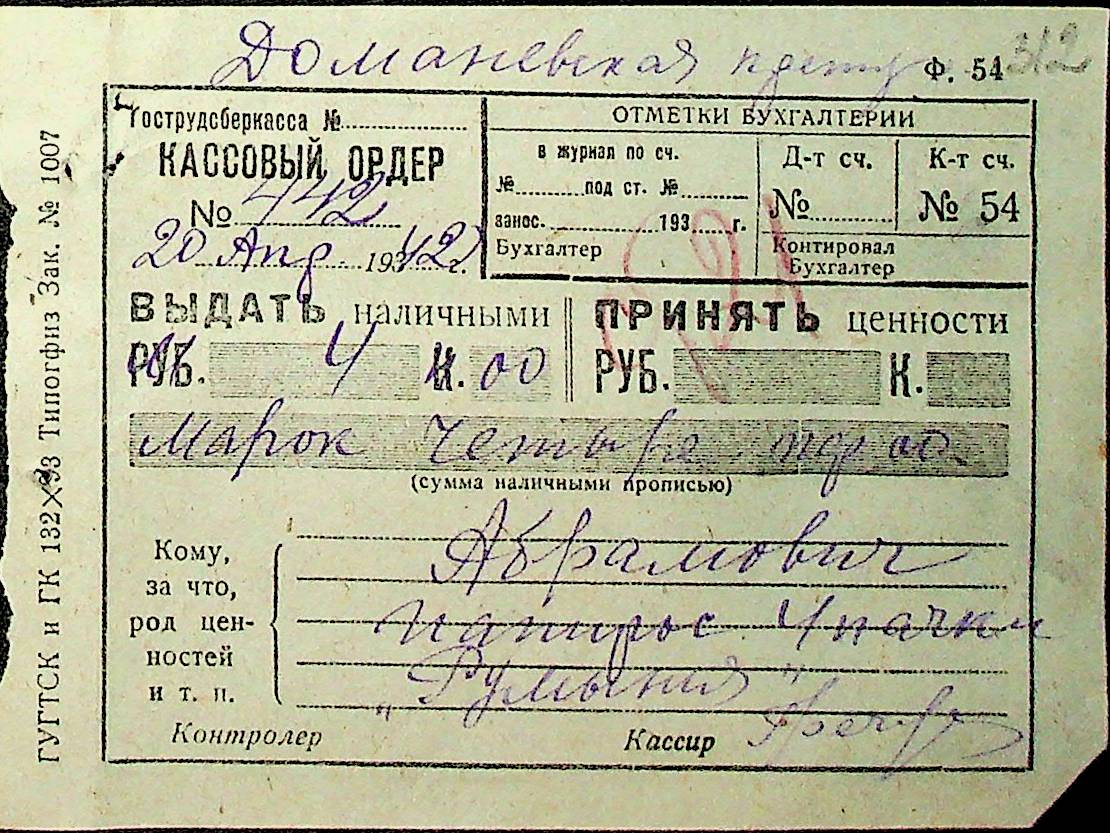 Доманевская Ф. 54 312
Гострудсберкасса №
КАССОВЫЙ ОРДЕР
№ 442
20 Апр 1942 г.
ОТМЕТКИ БУХГАЛТЕРИИ
в журнал по сч.
№ под ст. №
занос. 193 г.
Бухгалтер
Д-т сч.
№
К-т сч.
№ 54
Контировал
Бухгалтер
ВЫДАТЬ наличными
РУБ. 4 К. 00
ПРИНЯТЬ ценности
РУБ. К.
Марок Четыре 00
(сумма наличными прописью)
Кому,
за что,
род цен-
ностей
и т. п.
Абрамович
папирос 4 пачки
„Румыния"
Контролер Кассир
ГУГТСК и ГК 132×93 Типогфиз Зак. № 1007